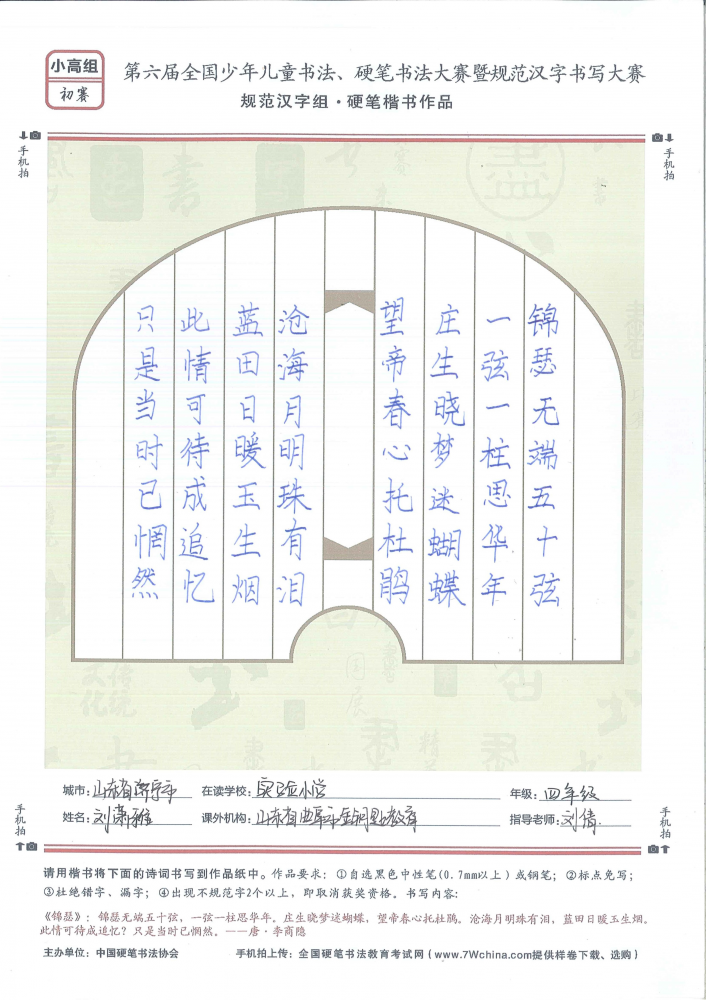 小高组
初赛
第六届全国少年儿童书法、硬笔书法大赛暨规范汉字书写大赛
规范汉字组·硬笔楷书作品
手机拍
手机拍
锦瑟无端五十弦
一弦一柱思华年
庄生晓梦迷蝴蝶
望帝春心托杜鹃
沧海月明珠有泪
蓝田日暖玉生烟
此情可待成追忆
只是当时已惘然
城市：山东省济宁市 在读学校：实验小学 年级：四年级
姓名：刘潇雅 课外机构：山东省曲阜市金钥匙教育 指导老师：刘倩
手机拍
手机拍
请用楷书将下面的诗词书写到作品纸中。作品要求：①自选黑色中性笔(0.7mm以上)或钢笔；②标点免写；
③杜绝错字、漏字；④出现不规范字2个以上，即取消获奖资格。书写内容：
《锦瑟》：锦瑟无端五十弦，一弦一柱思华年。庄生晓梦迷蝴蝶，望帝春心托杜鹃。沧海月明珠有泪，蓝田日暖玉生烟。
此情可待成追忆？只是当时已惘然。——唐·李商隐
主办单位：中国硬笔书法协会 手机拍上传：全国硬笔书法教育考试网（www.7Wchina.com提供样卷下载、选购）